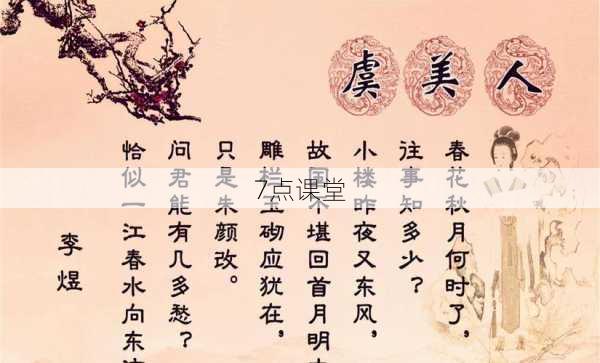 虞美人
春花秋月何时了，
往事知多少？
小楼昨夜又东风，
故国不堪回首月明
雕栏玉砌应犹在，
只是朱颜改。
问君能有几多愁？
恰似一江春水向东
李煜
7点课堂